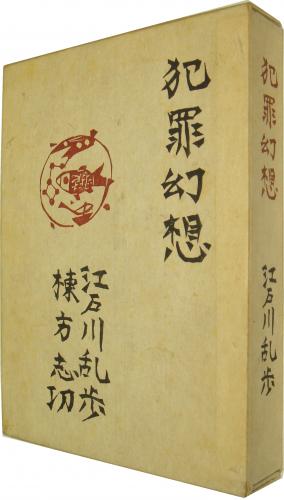 犯罪幻想
江戸川乱歩
棟方志功
犯罪幻想
江戸川乱歩